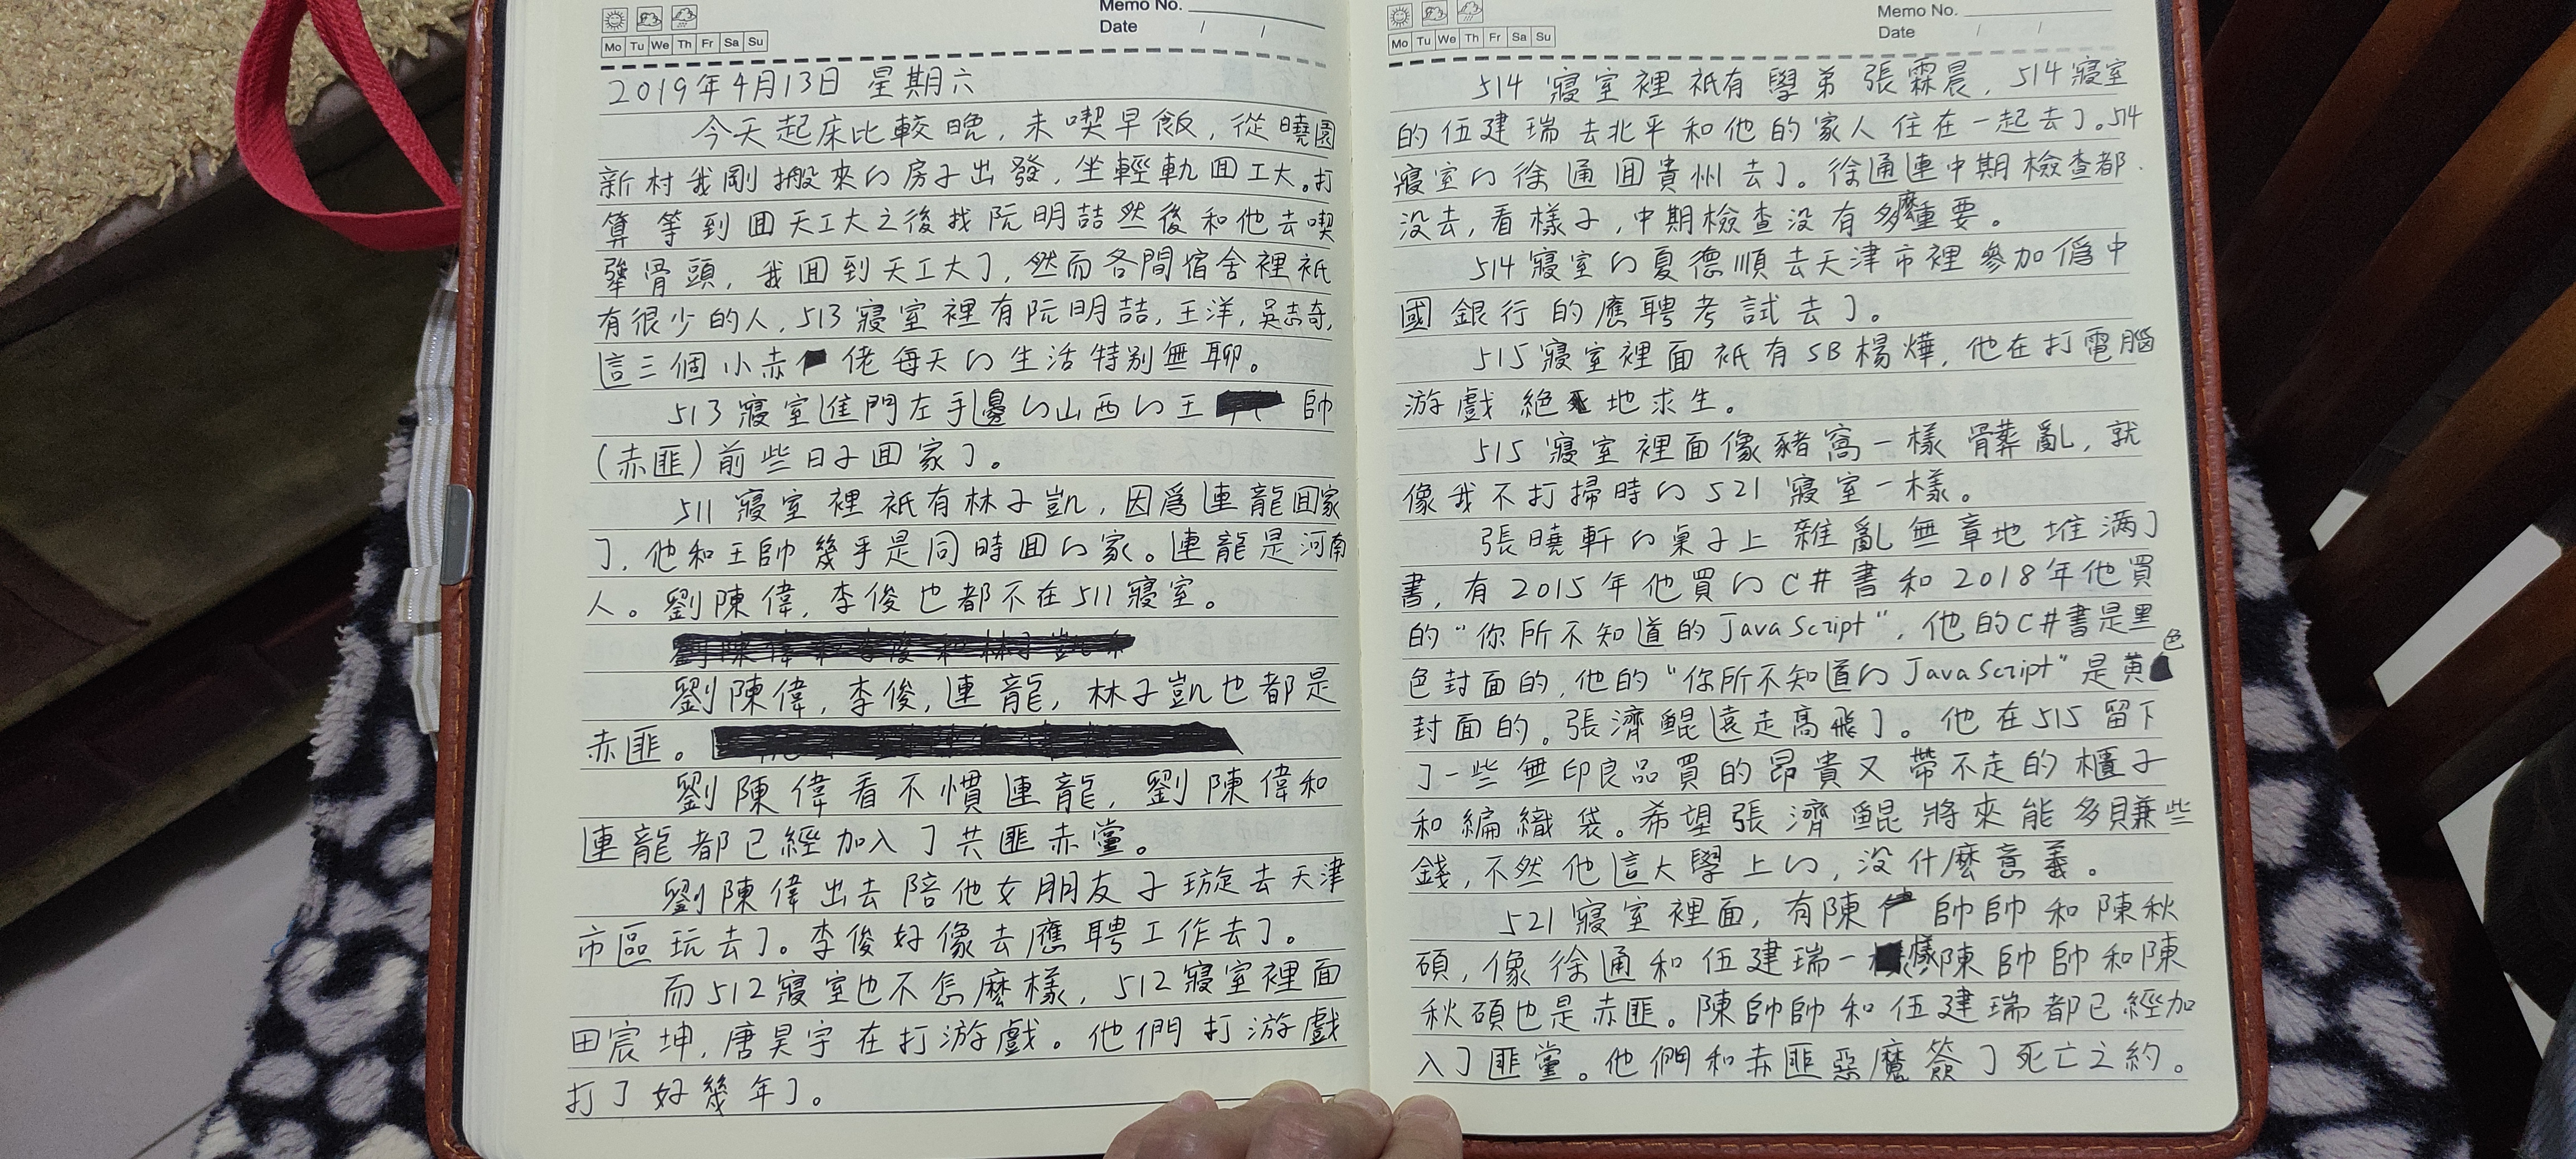 Memo No.
Date / /
Mo Tu We Th Fr Sa Su
2019年4月13日 星期六
今天起床比較晚，未喫早飯，從曉園
新村我剛搬來的房子出發，坐輕軌回工大。打
算等到回天工大之後找阮明喆然後和他去喫
犖骨頭，我回到天工大了，然而各間宿舍裡祇
有很少的人，513寢室裡有阮明喆，王洋，吳志奇，
這三個小赤佬每天的生活特别無聊。
513寢室進門左手邊的山西的王帥
(赤匪)前些日子回家了。
511寢室裡祇有林子凱，因爲連龍回家
了，他和王帥幾乎是同時回的家。連龍是河南
人。劉陳偉，李俊也都不在511寢室。
劉陳偉，李俊，連龍，林子凱也都是
赤匪。
劉陳偉看不慣連龍，劉陳偉和
連龍都已經加入了共匪赤黨。
劉陳偉出去陪他女朋友子琁去天津
市區玩去了。李俊好像去應聘工作去了。
而512寢室也不怎麽樣，512寢室裡面
田宸坤，唐昊宇在打游戲。他們打游戲
打了好幾年了。
Memo No.
Date / /
Mo Tu We Th Fr Sa Su
514寢室裡祇有學弟張霖晨，514寢室
的伍建瑞去北平和他的家人住在一起去了。514
寢室的徐通回貴州去了。徐通連中期檢查都
没去，看樣子，中期檢查没有多麽重要。
514寢室的夏德順去天津市裡參加僞中
國銀行的應聘考試去了。
515寢室裡面祇有SB楊燁，他在打電腦
游戲絕地求生。
515寢室裡面像豬窩一樣骨葬亂，就
像我不打掃時的521寢室一樣。
張曉軒的桌子上雜亂無章地堆满了
書，有2015年他買的C#書和2018年他買
的“你所不知道的JavaScript”，他的C#書是黑
色封面的，他的“你所不知道的JavaScript”是黄色
封面的。張濟鯤遠走高飛了。他在515留下
了一些無印良品買的昂貴又帶不走的櫃子
和編織袋。希望張濟鯤將來能多賺些
錢，不然他這大學上的，没什麽意義。
521寢室裡面，有陳帥帥和陳秋
碩，像徐通和伍建瑞一樣陳帥帥和陳
秋碩也是赤匪。陳帥帥和伍建瑞都已經加
入了匪黨。他們和赤匪惡魔簽了死亡之約。